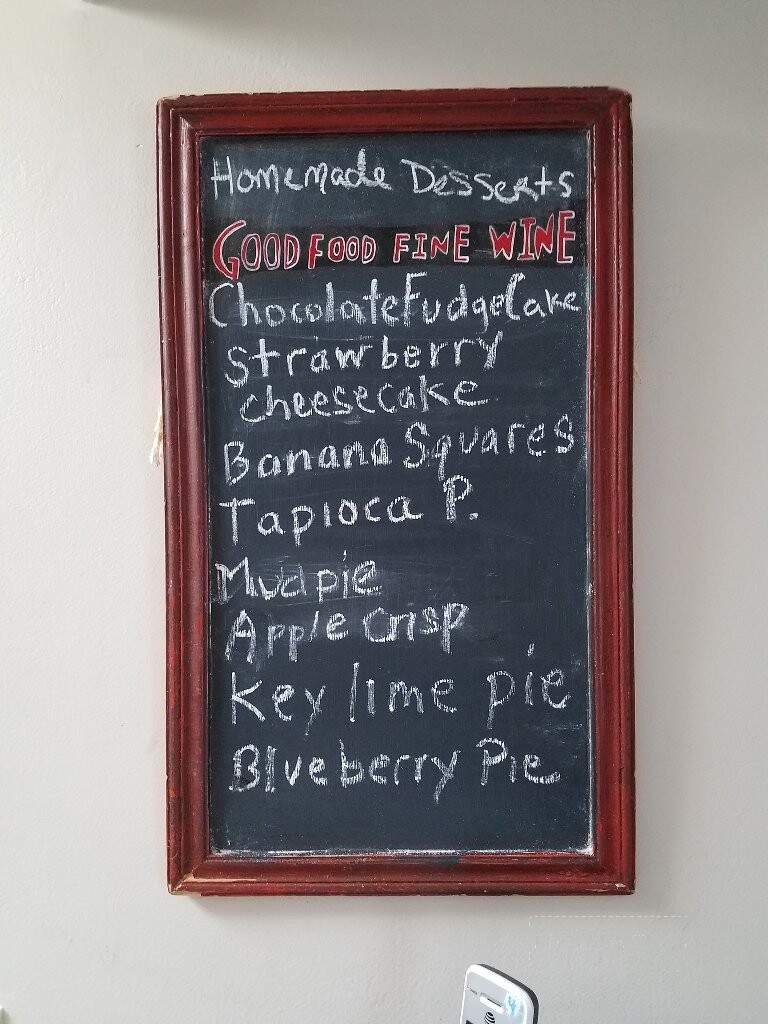 Homemade Desserts
GOOD FOOD FINE WINE
Chocolate Fudge Cake
Strawberry
cheesecake
Banana Squares
Tapioca P.
Mudpie
Apple Crisp
Key lime pie
Blueberry Pie